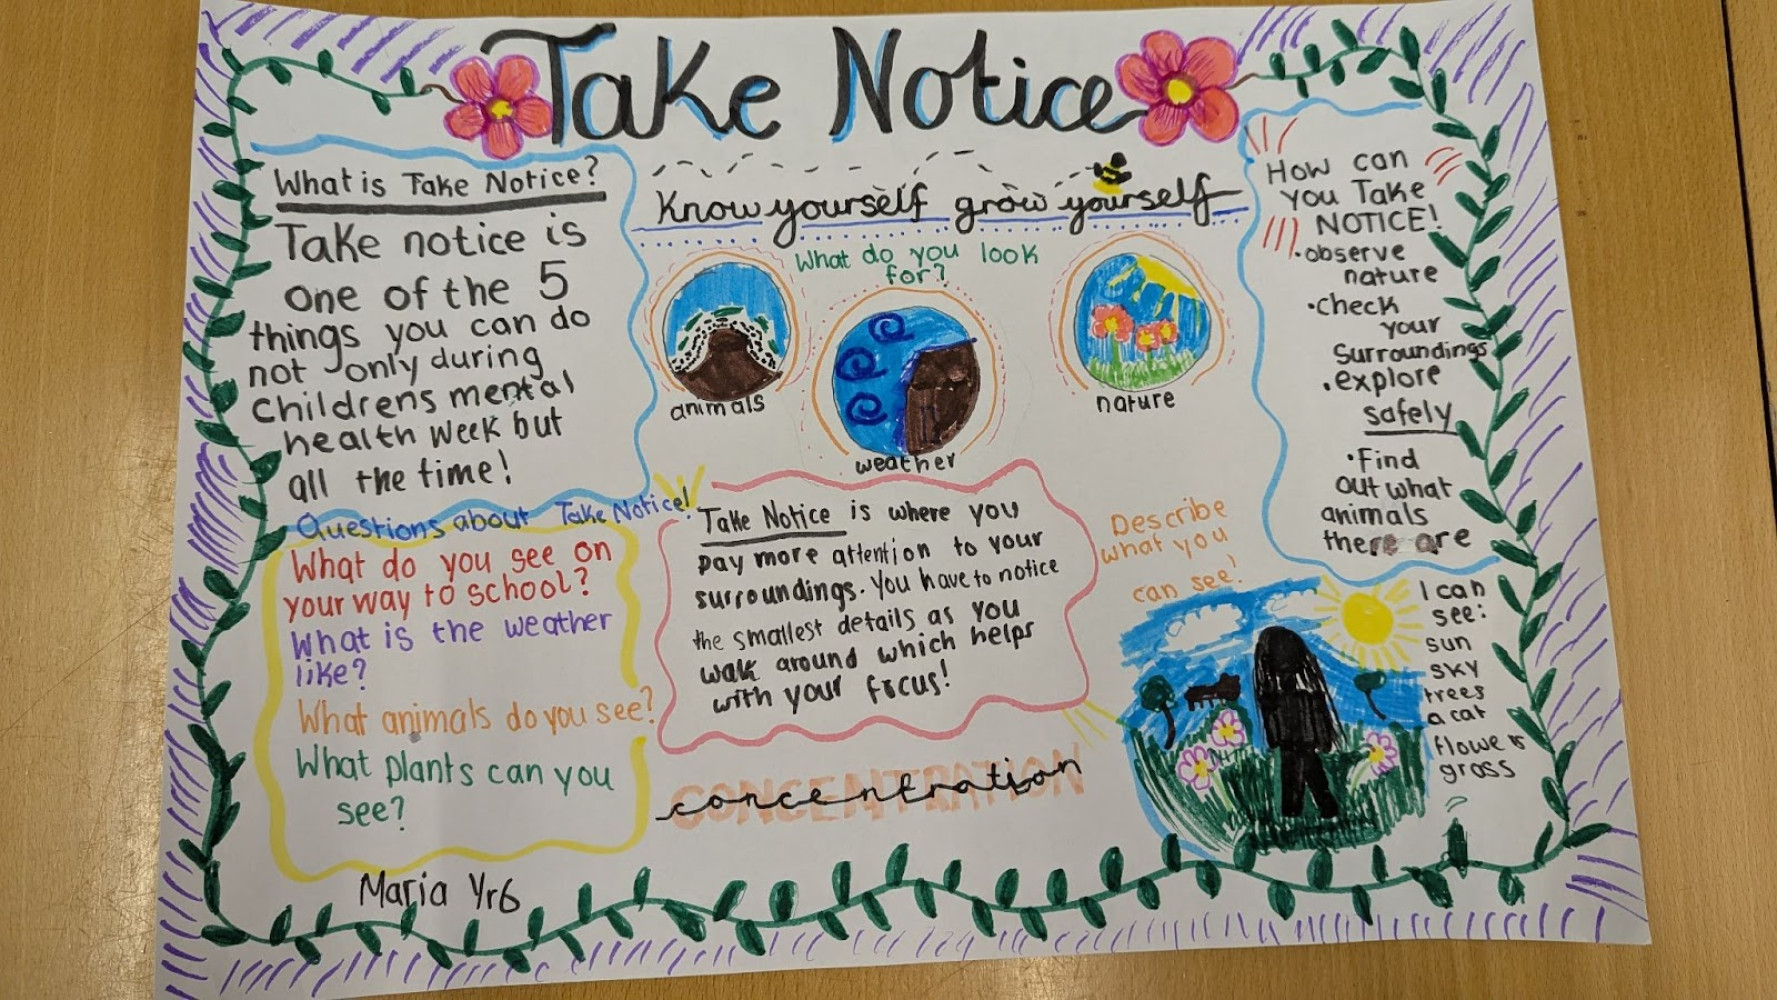 Take Notice
What is Take Notice?
Take notice is
one of the 5
things you can do
not only during
childrens mental
health week but
all the time!
Know yourself grow yourself
What do you look
for?
animals
weather
nature
How can
you Take
NOTICE!
•observe
nature
•check
your
surroundings
•explore
safely
•Find
out what
animals
there are
Questions about Take Notice!
What do you see on
your way to school?
What is the weather
like?
What animals do you see?
What plants can you
see?
Take Notice is where you
pay more attention to your
surroundings. You have to notice
the smallest details as you
walk around which helps
with your focus!
CONCENTRATION
concentration
Describe
what you
can see!
I can
see:
sun
sky
trees
a cat
flowers
grass
Maria Yr6